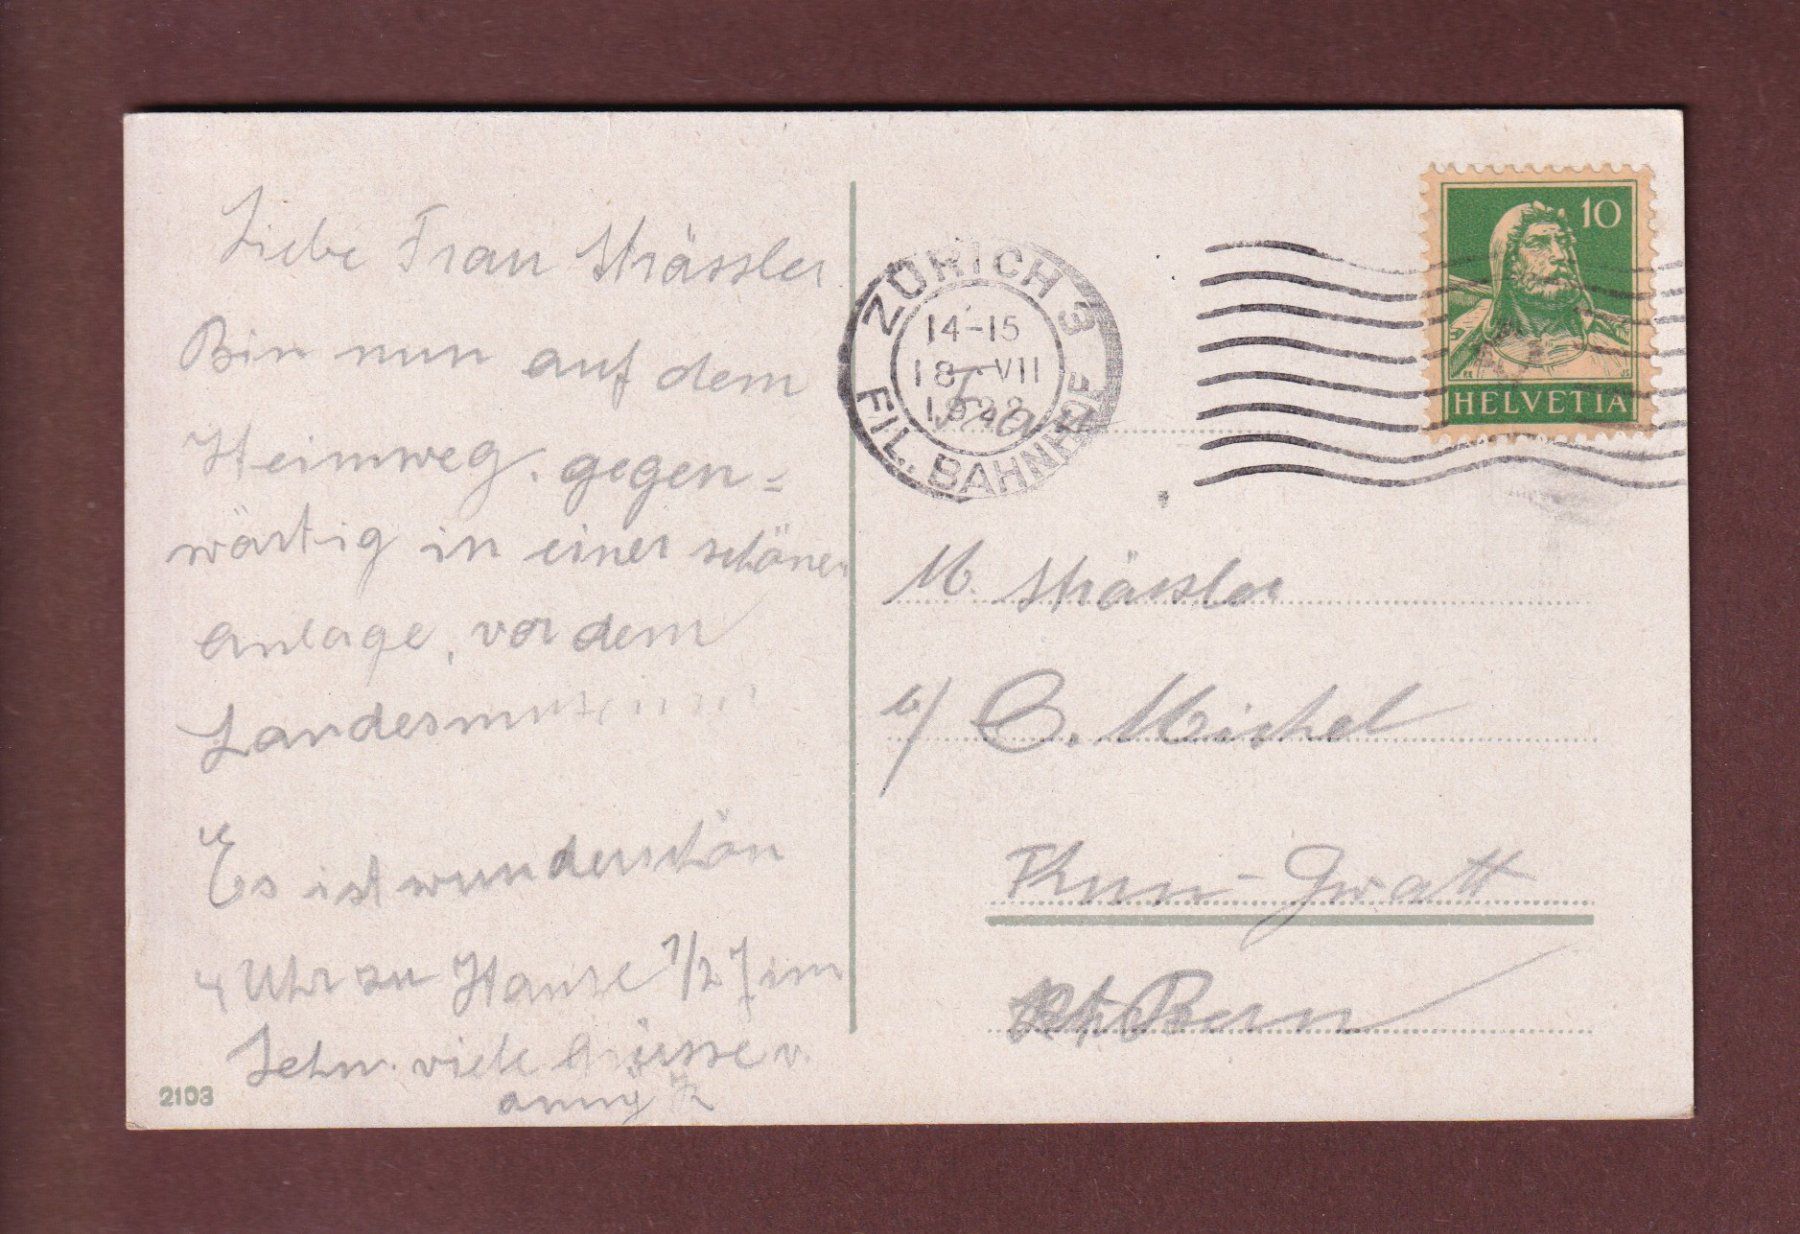 Liebe Frau Strässler
Bin nun auf dem
Heimweg. gegen=
wärtig in einer schönen
anlage, vor dem
Landesmuseum
Es ist wunderschön
4 Uhr zu Hause 1/2 7 im
viele Grüsse v.
anny
2103
ZÜRICH 3
14-15
18-VII
1922
FIL. BAHNHOF
10
HELVETIA
Frau
M. Strässler
b/ C. Michel
Thun-Gwatt
Kt. Bern